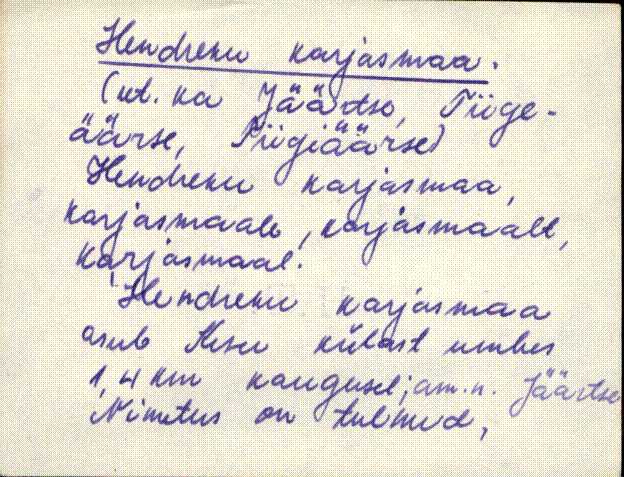 Hendreku karjasmaa.
(vt. ka Jäärtse, Tiige-
äärse, Tiigiäärse)
Hendreku karjasmaa,
karjasmaale, karjasmaalt,
karjasmaal.
Hendreku karjasmaa
asub külast umbes
1,4 km kaugusel; a.m.n. Jäärtse
Nimetus on tulnud,